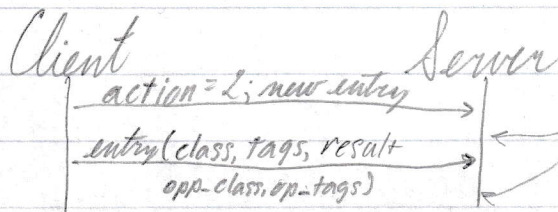 Client Server
action=2; new entry
entry(class, tags, result
opp_class, op_tags)